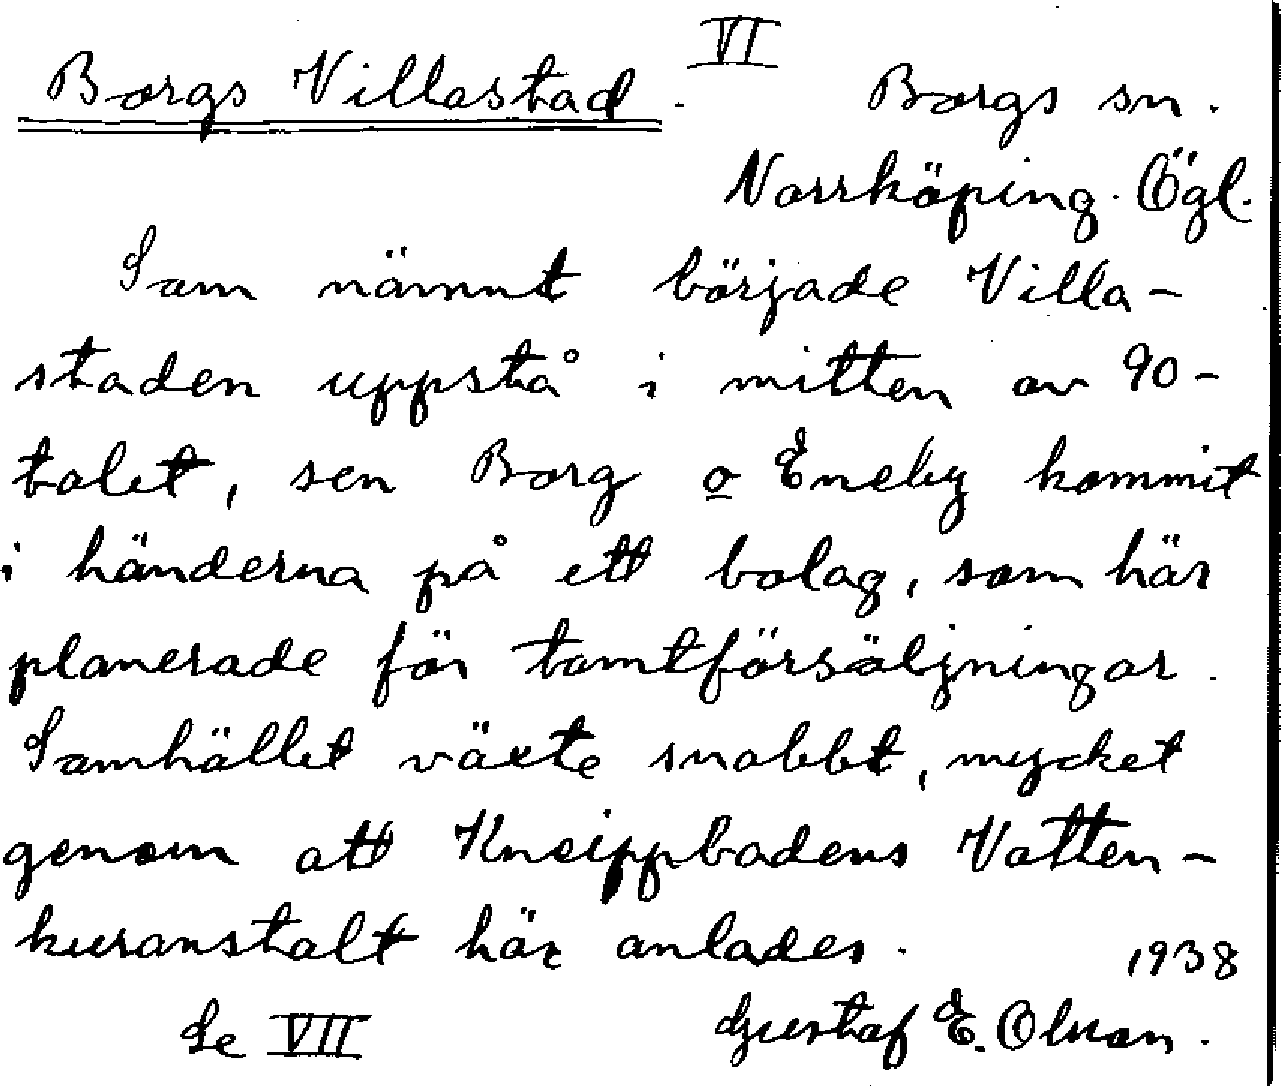 VI
Borgs Villastad. Borgs sn.
Norrköping. Ögl.
Som nämnt började Villa-
staden uppstå i mitten av 90-
talet, sen Borg o Eneby kommit
i händerna på ett bolag, som här
planerade för tomtförsäljningar.
Samhället växte snabbt, mycket
genom att Kneippbadens Vatten-
kuranstalt här anlades.
1938
Se VII Gustaf E. Olson.